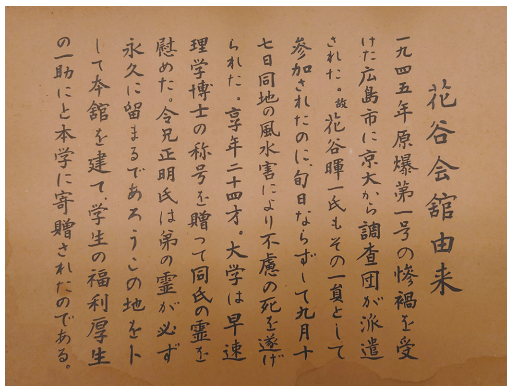 花谷会舘由来
一九四五年原爆第一号の惨禍を受
けた広島市に京大から調査団が派遣
された。故花谷暉一氏もその一員として
参加されたのに、旬日ならずして九月十
七日同地の風水害により不慮の死を遂げ
られた。享年二十四才。大学は早速
理学博士の称号を贈って同氏の霊を
慰めた。令兄正明氏は弟の霊が必ず
永久に留まるであろうこの地をト
して本舘を建て、学生の福利厚生
の一助にと本学に寄贈されたのである。